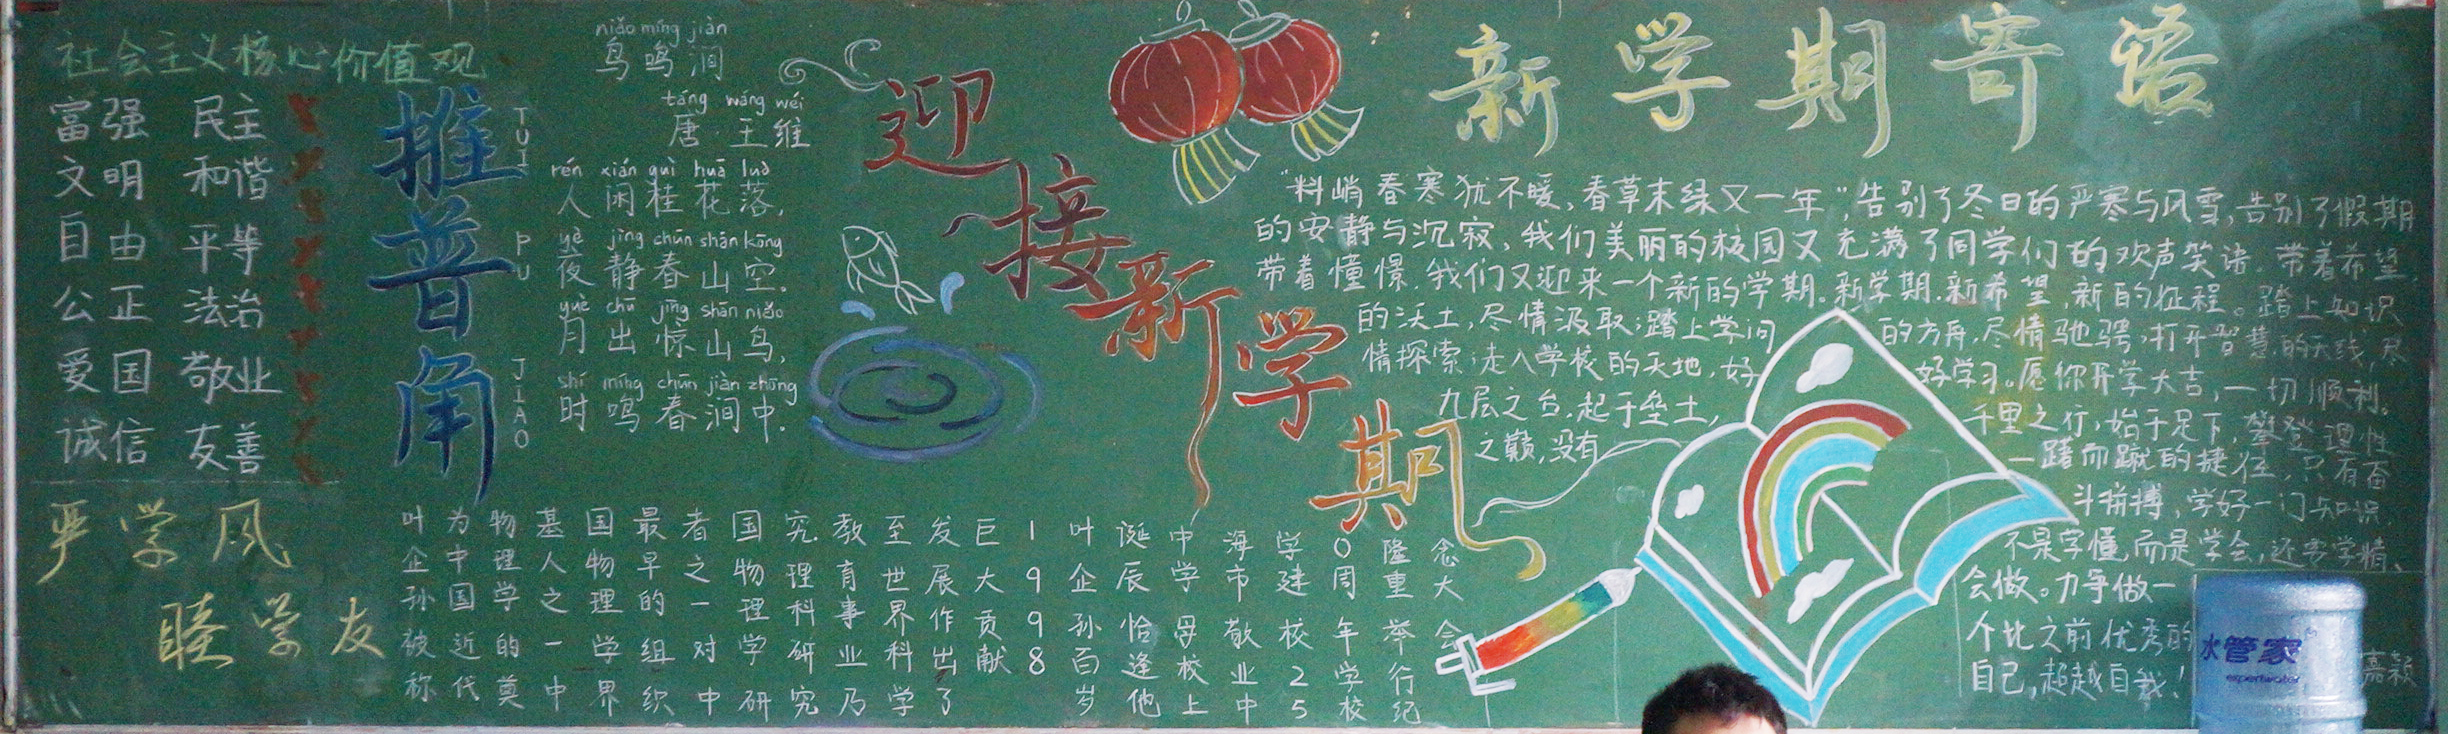 社会主义核心价值观
富强 民主
文明 和谐
自由 平等
公正 法治
爱国 敬业
诚信 友善
严学风
睦学友
推普角
TUI PU JIAO
niǎo míng jiàn
鸟鸣涧
táng wáng wéi
唐·王维
rén xián guì huā luò
人闲桂花落,
yè jìng chūn shān kōng
夜静春山空.
yuè chū jīng shān niǎo
月出惊山鸟,
shí míng chūn jiàn zhōng
时鸣春涧中.
迎接新学期
叶企孙被称
为中国近代
物理学的奠
基人之一中
国物理学界
最早的组织
者之一对中
国物理学研
究理科研究
教育事业乃
至世界科学
发展作出了
巨大贡献
1998
叶企孙百岁
诞辰恰逢他
中学母校上
海市敬业中
学建校25
0周年学校
隆重举行纪
念大会
新学期寄语
“料峭春寒犹不暖,春草未绿又一年”,告别了冬日的严寒与风雪,告别了假期
的安静与沉寂,我们美丽的校园又充满了同学们的欢声笑语.带着希望,
带着憧憬.我们又迎来一个新的学期.新学期.新希望,新的征程。踏上知识
的沃土,尽情汲取;踏上学问的方舟,尽情驰骋;打开智慧的天线,尽
情探索;走入学校的天地,好好学习。愿你开学大吉,一切顺利。
九层之台.起于垒土,千里之行,始于足下,攀登理性
之巅,没有一蹴而蹴的捷径,只有奋
斗拼搏,学好一门知识,
不是字懂,而是学会,还要学精、
会做。力争做一
个比之前优秀的
自己,超越自我!
嘉颖
水管家
expertwater